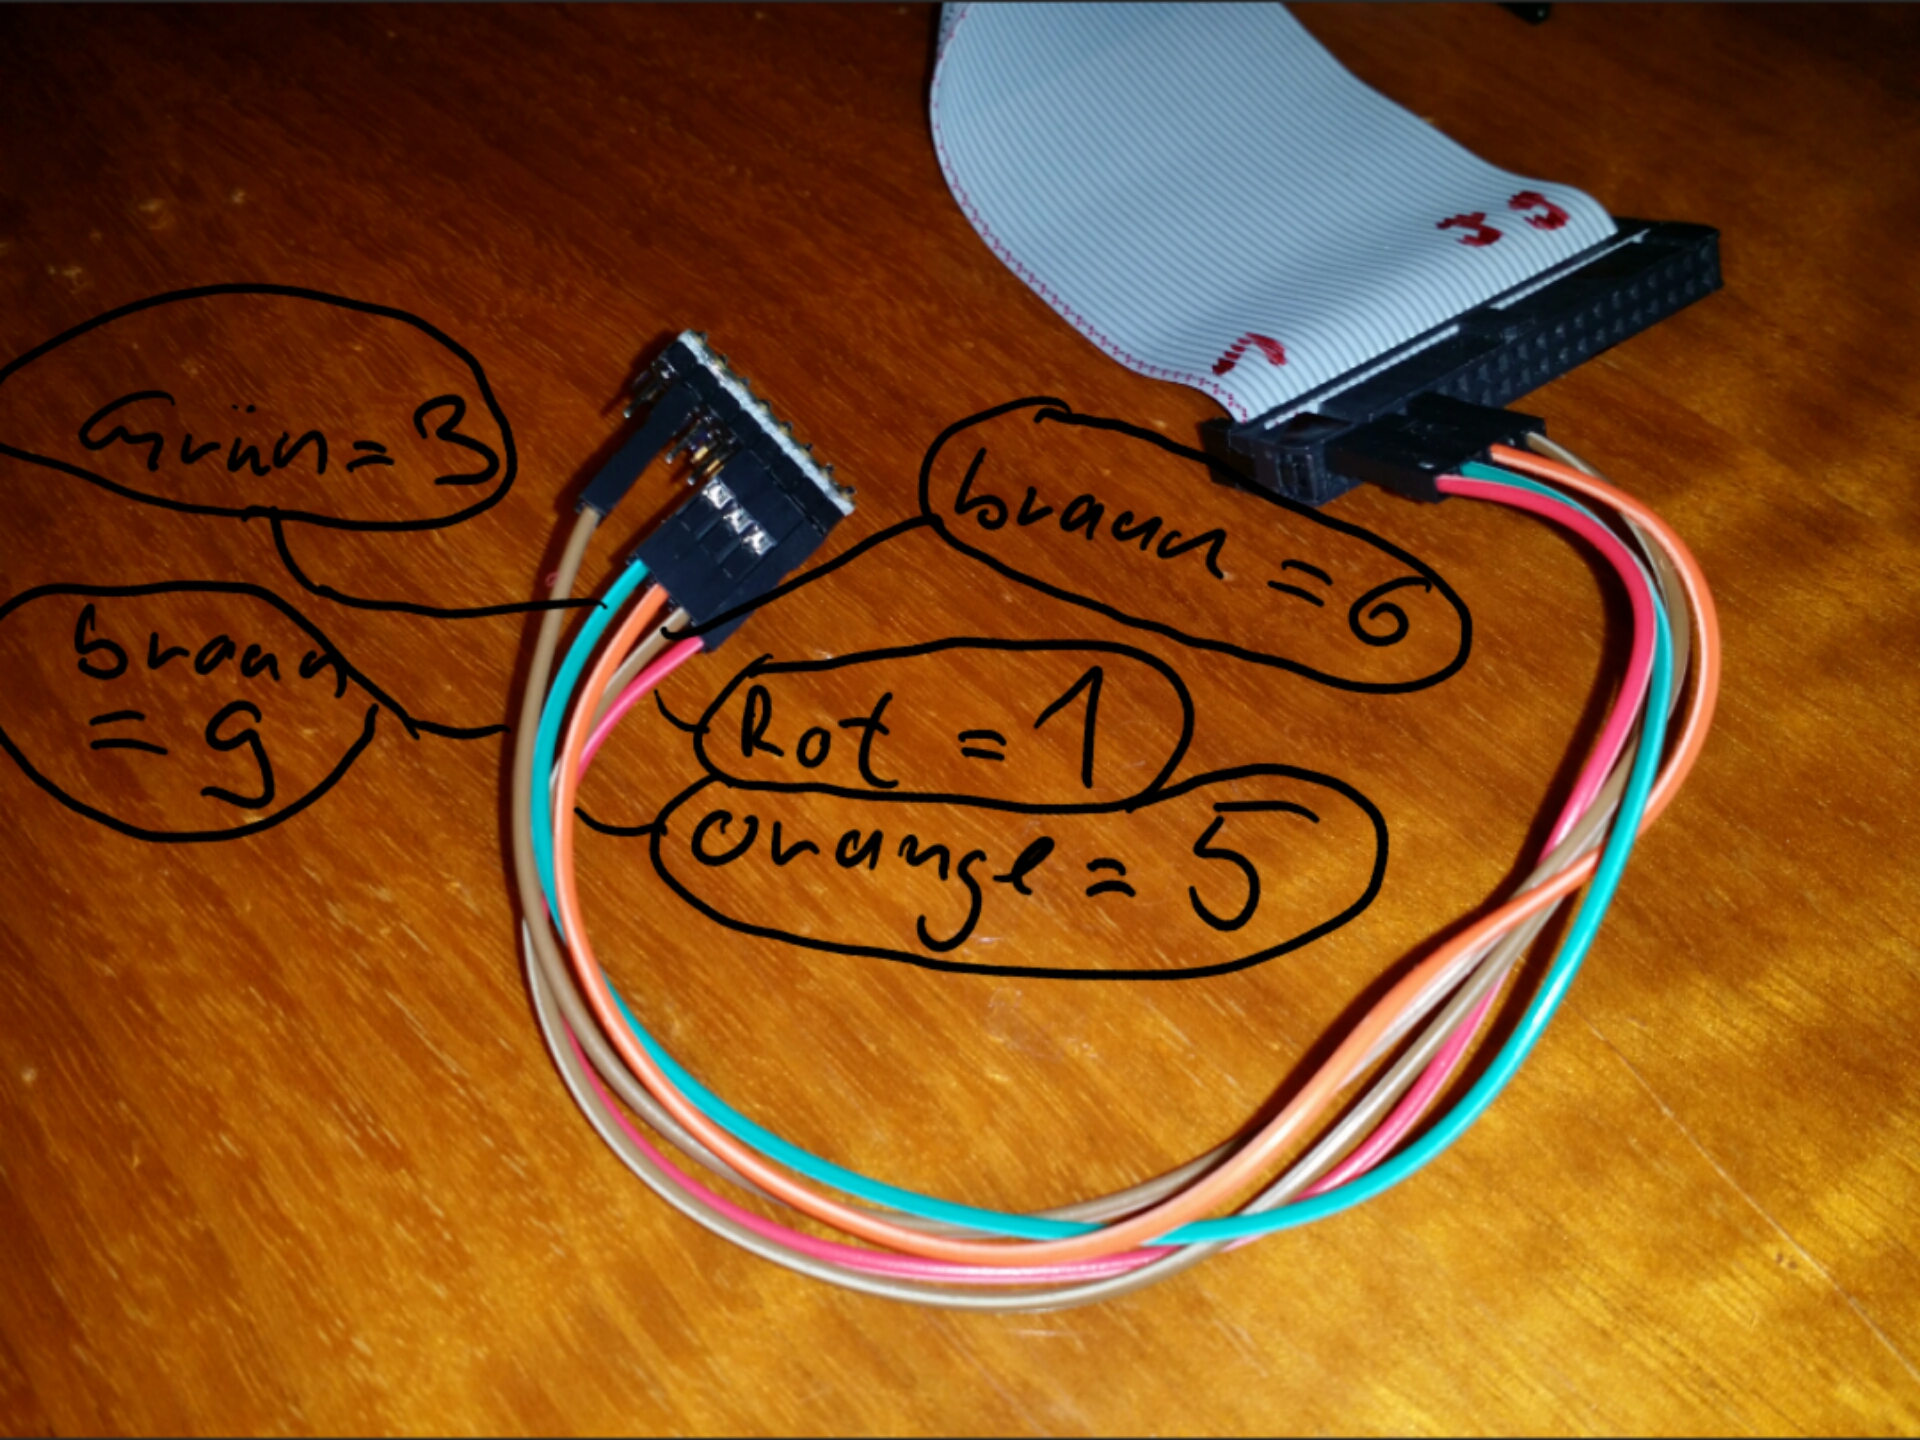 39
1
Grün = 3
braun = 6
braun
= 9
Rot = 1
orange = 5